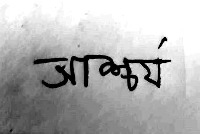 আশ্চর্য